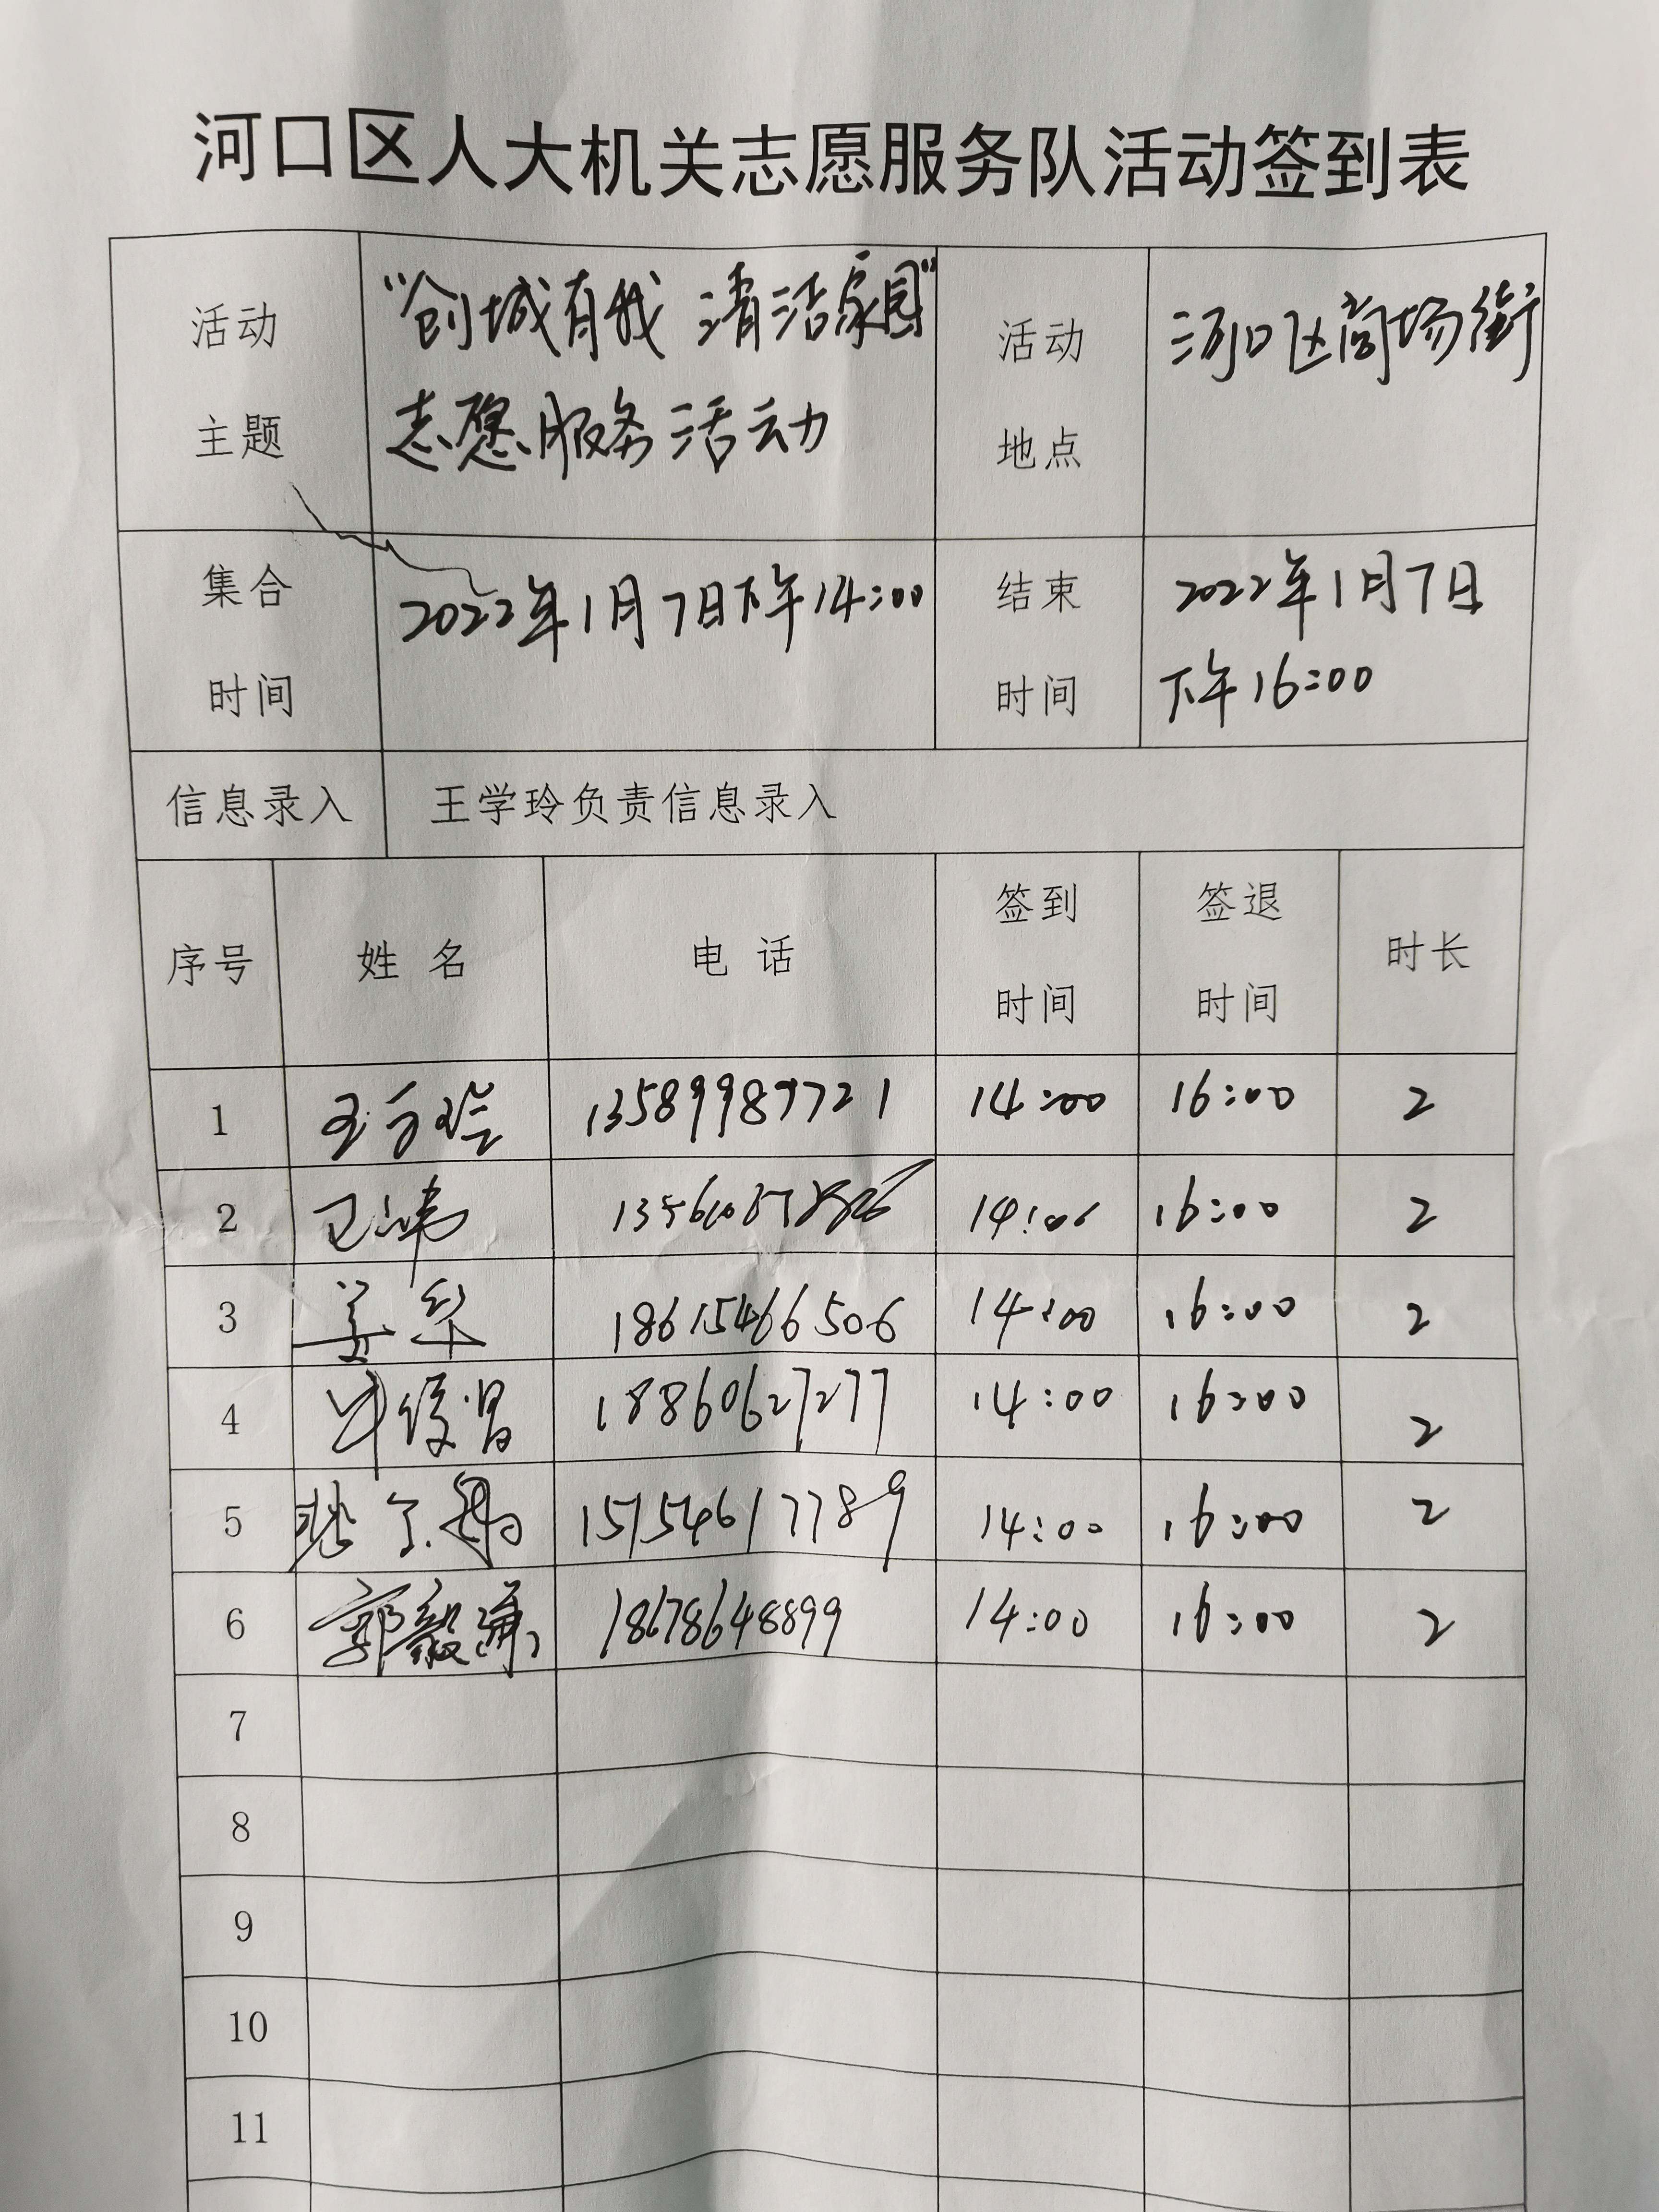 河口区人大机关志愿服务队活动签到表
活动主题 "创城有我 清洁家园" 活动地点 河口区商场街
志愿服务活动
集合时间 2022年1月7日下午14:00 结束时间 2022年1月7日
下午16:00
信息录入 王学玲负责信息录入
序号 姓名 电话 签到时间 签退时间 时长
1 13589987721 14:00 16:00 2
2 14:00 16:00 2
3 姜华 18615466506 14:00 16:00 2
4 18860627277 14:00 16:00 2
5 15154617789 14:00 16:00 2
6 郭毅 18678648899 14:00 16:00 2
7
8
9
10
11